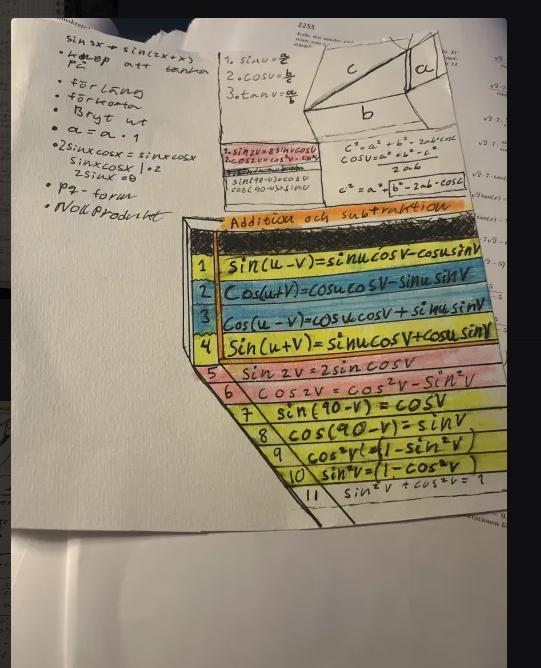 sin3x = sin(2x+x)
• knep att tänka
på
• förläng
• förkorta
• Bryt ut
• a = a · 1
• 2sinxcosx = sinxcosx
sinxcosx | · 2
2sinx = 0
• pq-form
• Nollprodukt
1. sinv = a/c
2. cosv = b/c
3. tanv = a/b
c
a
b
1. sin2v = 2sinvcosv
2. cos2v = cos²v - sin²v
sin(90-v) = cosv
cos(90-v) = sinv
c² = a² + b² - 2ab·cosc
cosv = a² + b² - c²
2ab
2255
Addition och subtraktion
1 sin(u-v) = sinucosv-cosusinv
2 Cos(u+v) = cosucosv-sinusinv
3 Cos(u-v) = cosucosv + sinusinv
4 Sin(u+v) = sinucosv+cosusinv
5 Sin2v = 2sincosv
6 Cos2v = cos²v - sin²v
7 sin(90-v) = cosv
8 cos(90-v) = sinv
9 cos²v = (1-sin²v)
10 sin²v = (1-cos²v)
11 sin²v + cos²v = 1